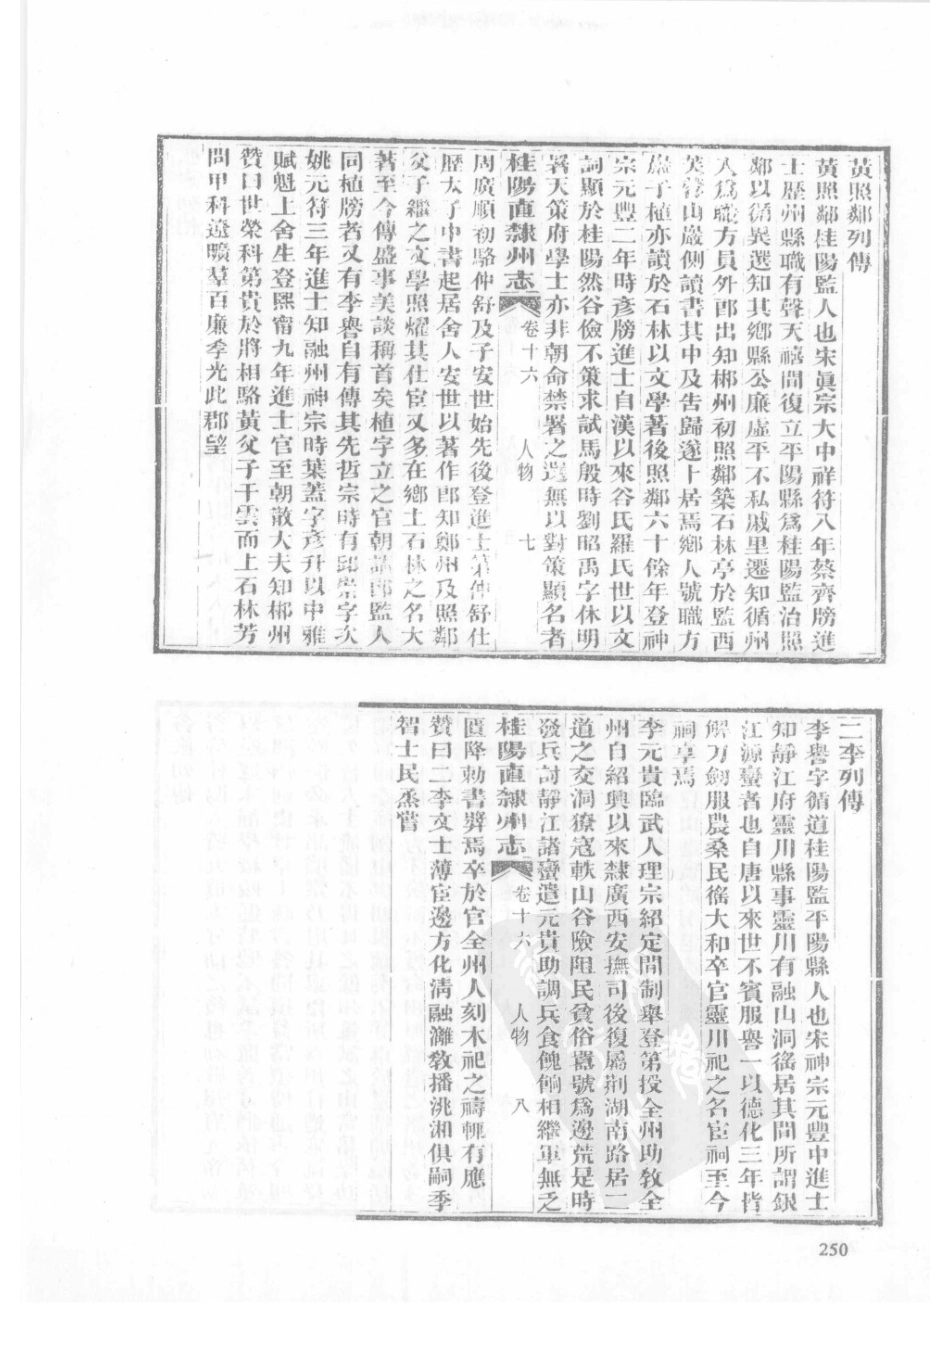 黃照鄰列傳
黃照鄰桂陽監人也宋眞宗大中祥符八年蔡齊牓進
士歷州縣職有聲天禧間復立平陽縣爲桂陽監治照
鄰以循異選知其鄉縣公廉虛平不私戚里遷知循州
入爲職方員外郎出知郴州初照鄰築石林亭於監西
芙蓉山巖側讀書其中及告歸遂卜居焉鄉人號職方
巖子植亦讀於石林以文學著後照鄰六十餘年登神
宗元豐二年時彥牓進士自漢以來谷氏羅氏世以文
詞顯於桂陽然谷儉不策求試馬殷時劉昭禹字休明
署天策府學士亦非朝命禁署之選無以對策顯名者
桂陽直隸州志 卷十六 人物 七
周廣順初駱仲舒及子安世始先後登進士第仲舒仕
歷太子中書起居舍人安世以著作郎知鄭州及照鄰
父子繼之文學照燿其仕宦又多在鄉土石林之名大
著至今傳盛事美談稱首矣植字立之官朝請郎監人
同植牓者又有李譽自有傳其先哲宗時有邱崇字次
姚元符三年進士知融州神宗時葉蓋字彥升以中雅
賦魁上舍生登熙甯九年進士官至朝散大夫知郴州
贊曰世榮科第貴於將相駱黃父子干雲而上石林芳
問甲科遠曠羣百廉季光此郡望
二李列傳
李譽字循道桂陽監平陽縣人也宋神宗元豐中進士
知靜江府靈川縣事靈川有融山洞徭居其間所謂銀
江源蠻者也自唐以來世不賓服譽一以德化三年皆
解刀劒服農桑民徭大和卒官靈川祀之名宦祠至今
祠享焉
李元貴臨武人理宗紹定間制舉登第授全州助教全
州自紹興以來隸廣西安撫司後復屬荆湖南路居二
道之交洞獠寇軼山谷險阻民貧俗囂號爲邊荒是時
發兵討靜江諸蠻遣元貴助調兵食餽餉相繼軍無乏
桂陽直隸州志 卷十六 人物 八
匱降勅書獎焉卒於官全州人刻木祀之禱輒有應
贊曰二李文士薄宦邊方化淸融灕敎播洮湘俱嗣季
智士民烝嘗
250